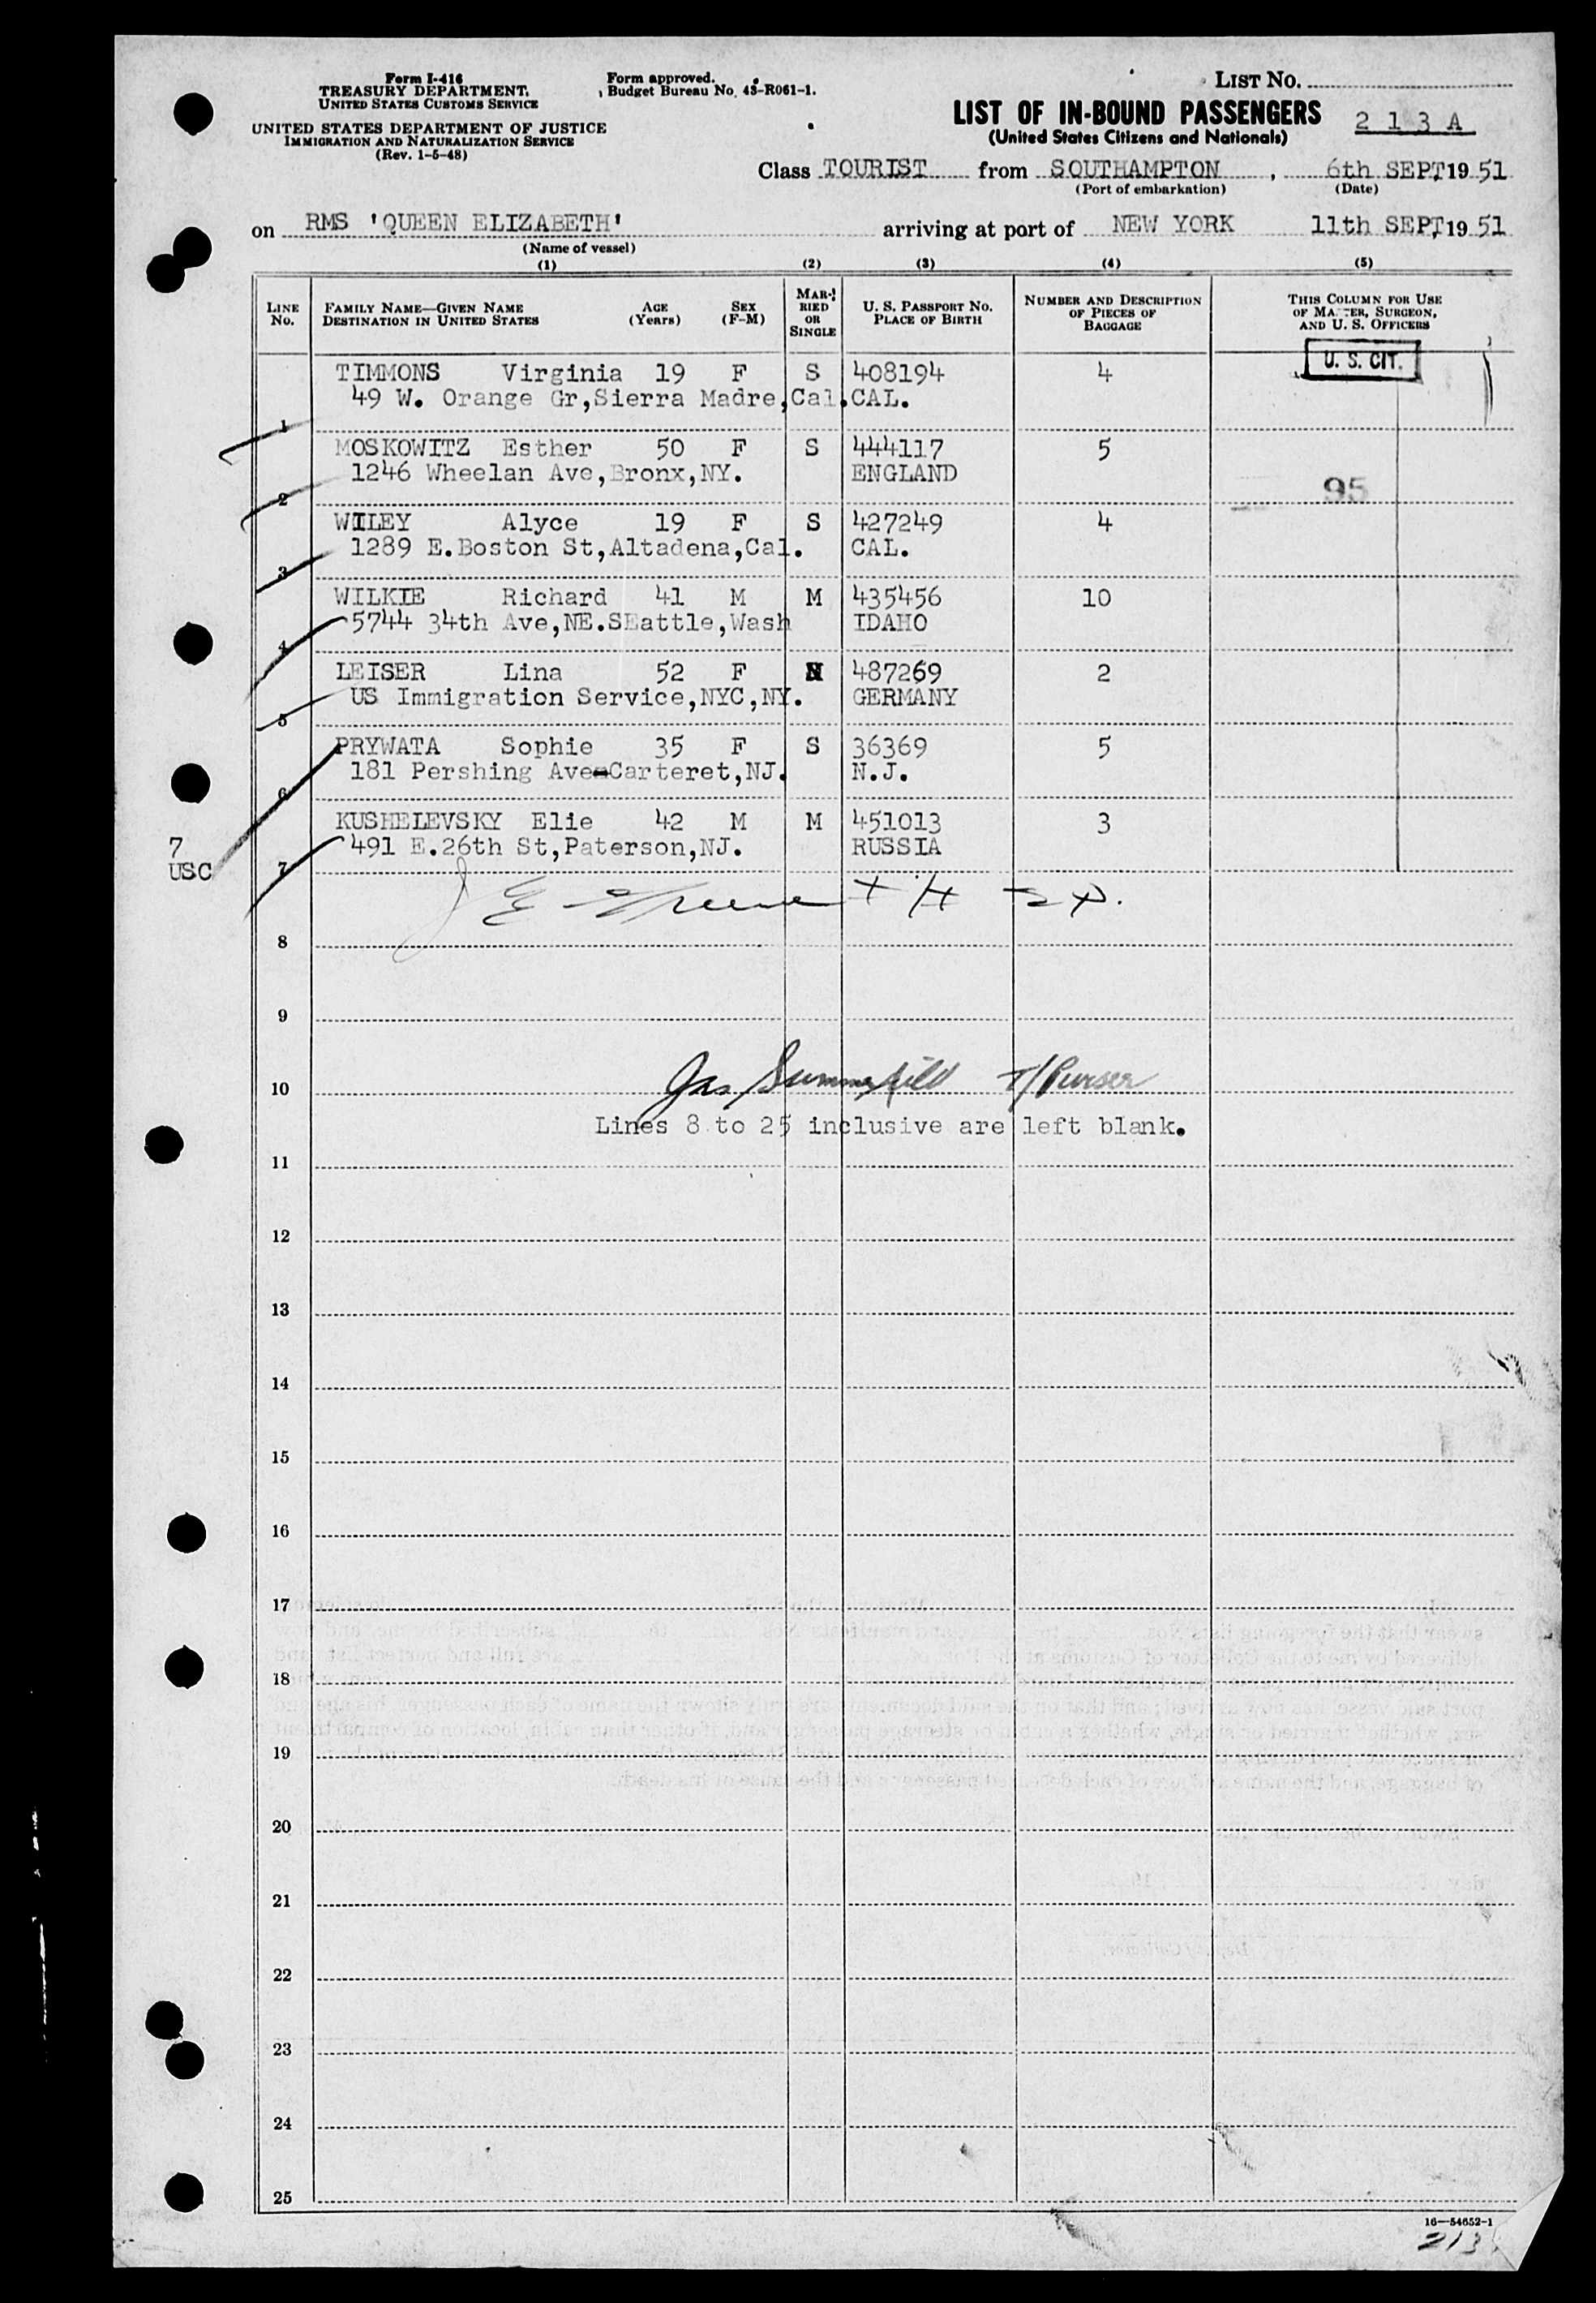 Form I-416
TREASURY DEPARTMENT.
UNITED STATES CUSTOMS SERVICE
UNITED STATES DEPARTMENT OF JUSTICE
IMMIGRATION AND NATURALIZATION SERVICE
(Rev. 1-5-48)
Form approved.
Budget Bureau No. 43-R061-1.
LIST NO.
LIST OF IN-BOUND PASSENGERS
(United States Citizens and Nationals)
2 1 3 A
Class TOURIST from SOUTHAMPTON, 6th SEPT 19 51
(Port of embarkation) (Date)
on RMS 'QUEEN ELIZABETH' arriving at port of NEW YORK 11th SEPT, 19 51
(Name of vessel)
(1) (2) (3) (4) (5)
LINE NO. FAMILY NAME—GIVEN NAME DESTINATION IN UNITED STATES AGE (Years) SEX (F-M) MARRIED OR SINGLE U. S. PASSPORT NO. PLACE OF BIRTH NUMBER AND DESCRIPTION OF PIECES OF BAGGAGE THIS COLUMN FOR USE OF MASTER, SURGEON, AND U. S. OFFICERS
U. S. CIT.
TIMMONS Virginia 19 F S 408194 4
1 49 W. Orange Gr,Sierra Madre,Cal. CAL.
MOSKOWITZ Esther 50 F S 444117 5
2 1246 Wheelan Ave,Bronx,NY. ENGLAND
95
WILEY Alyce 19 F S 427249 4
3 1289 E.Boston St,Altadena,Cal. CAL.
WILKIE Richard 41 M M 435456 10
4 5744 34th Ave,NE.SEattle,Wash IDAHO
LEISER Lina 52 F 487269 2
5 US Immigration Service,NYC,NY. GERMANY
PRYWATA Sophie 35 F S 36369 5
6 181 Pershing Ave-Carteret,NJ. N.J.
KUSHELEVSKY Elie 42 M M 451013 3
7 491 E.26th St,Paterson,NJ. RUSSIA
7
USC
8
9
10 Jas Summerfield T/Purser
Lines 8 to 25 inclusive are left blank.
11
12
13
14
15
16
17
18
19
20
21
22
23
24
25
16—54652-1
213